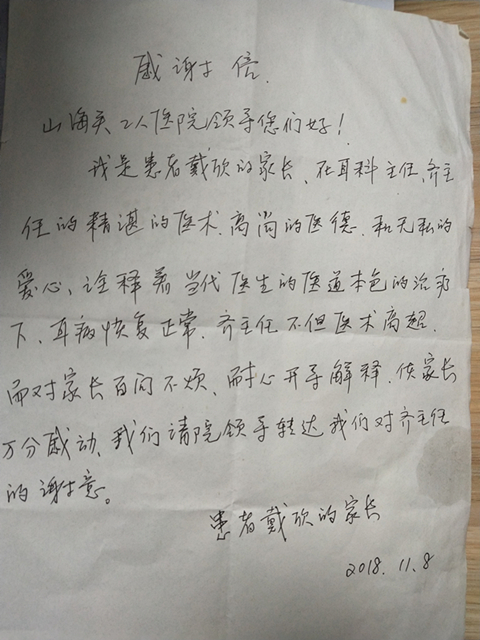 感谢信
山海关工人医院领导您们好！
我是患者戴欣的家长、在耳科主任、齐主
任的精湛的医术、高尚的医德、和无私的
爱心、诠释着当代医生的医道本色的治疗
下、耳病恢复正常、齐主任不但医术高超、
而对家长百问不烦、耐心开导解释、使家长
万分感动、我们请院领导转达我们对齐主任
的谢意。
患者戴欣的家长
2018.11.8